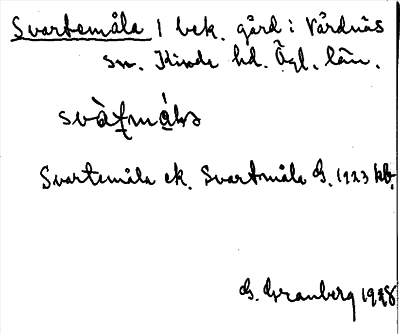 Svartemåla 1 bek. gård i Vårdnäs
sn. Kinda hd. Ögl. län.
Svartemåla ek. Svartmåla G. 1923 kb.
G. Granberg 1928